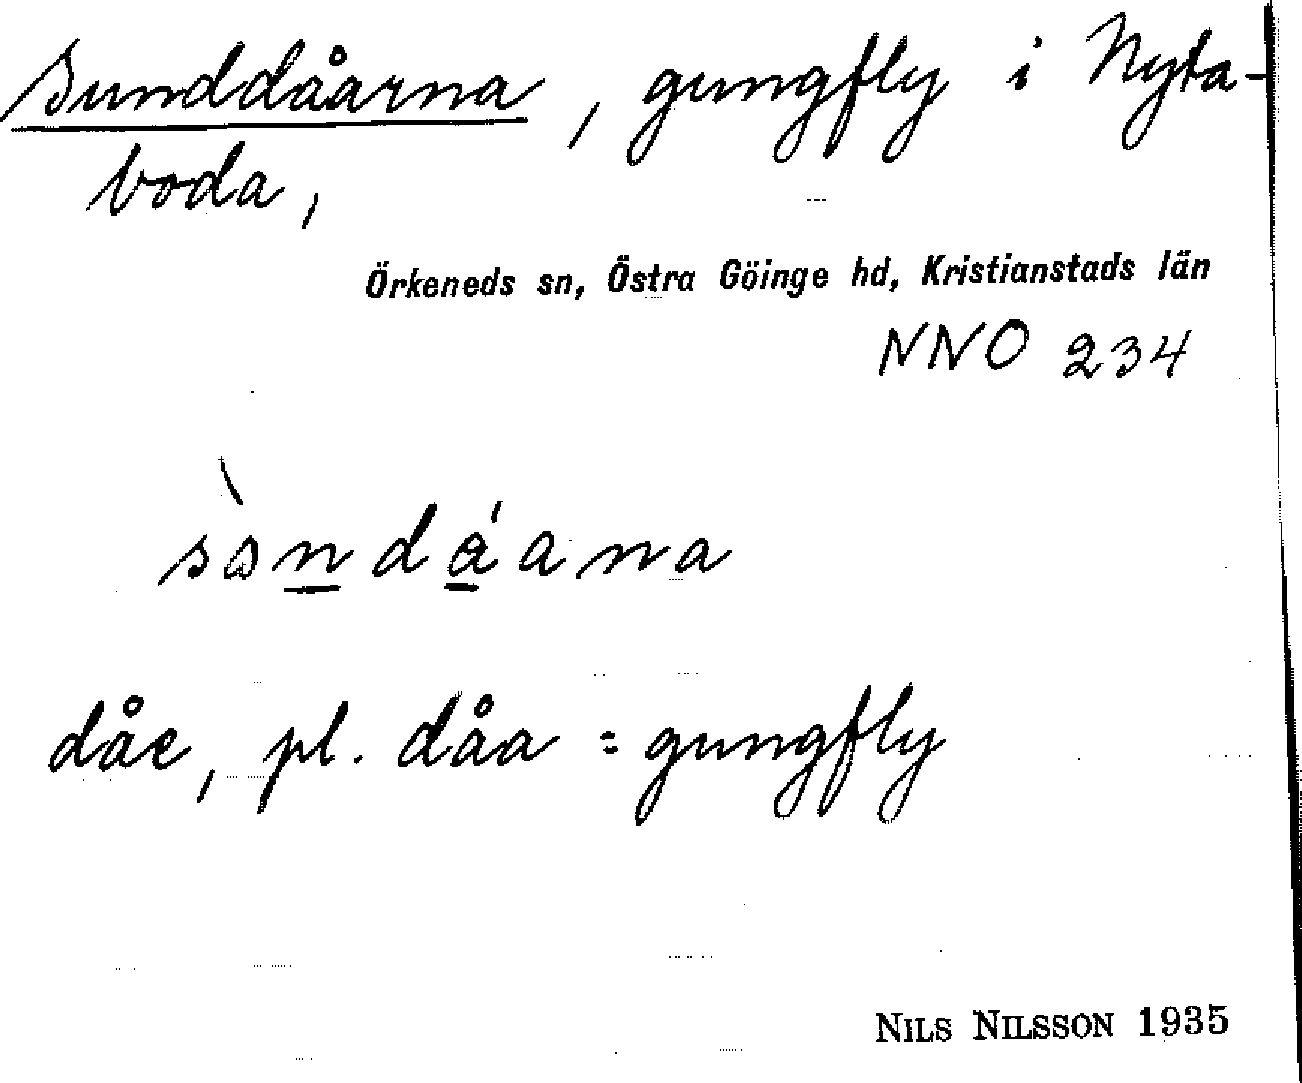 Sunddåarna, gungfly i Nyta-
boda,
Örkeneds sn, Östra Göinge hd, Kristianstads län
NNO 234
dåe, pl. dåa = gungfly
NILS NILSSON 1935